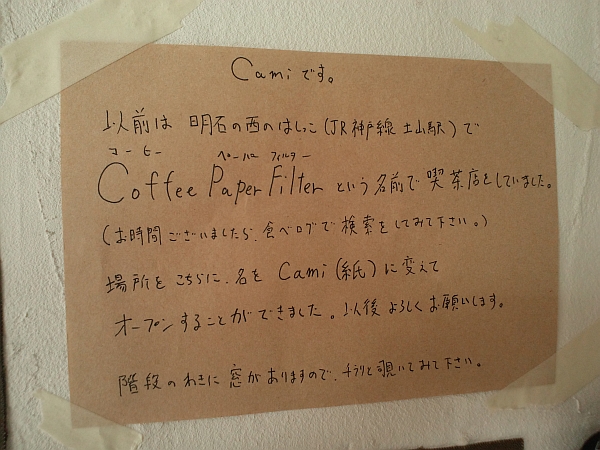 Camiです。
以前は 明石の西のはしっこ(JR神戸線 土山駅)で
コーヒー ペーパー フィルター
Coffee Paper Filter という名前で喫茶店をしていました。
(お時間ございましたら、食べログで検索をしてみて下さい。)
場所をこちらに、名を Cami(紙)に変えて
オープンすることができました。以後よろしくお願いします。
階段のわきに窓がありますので、チラリと覗いてみて下さい。